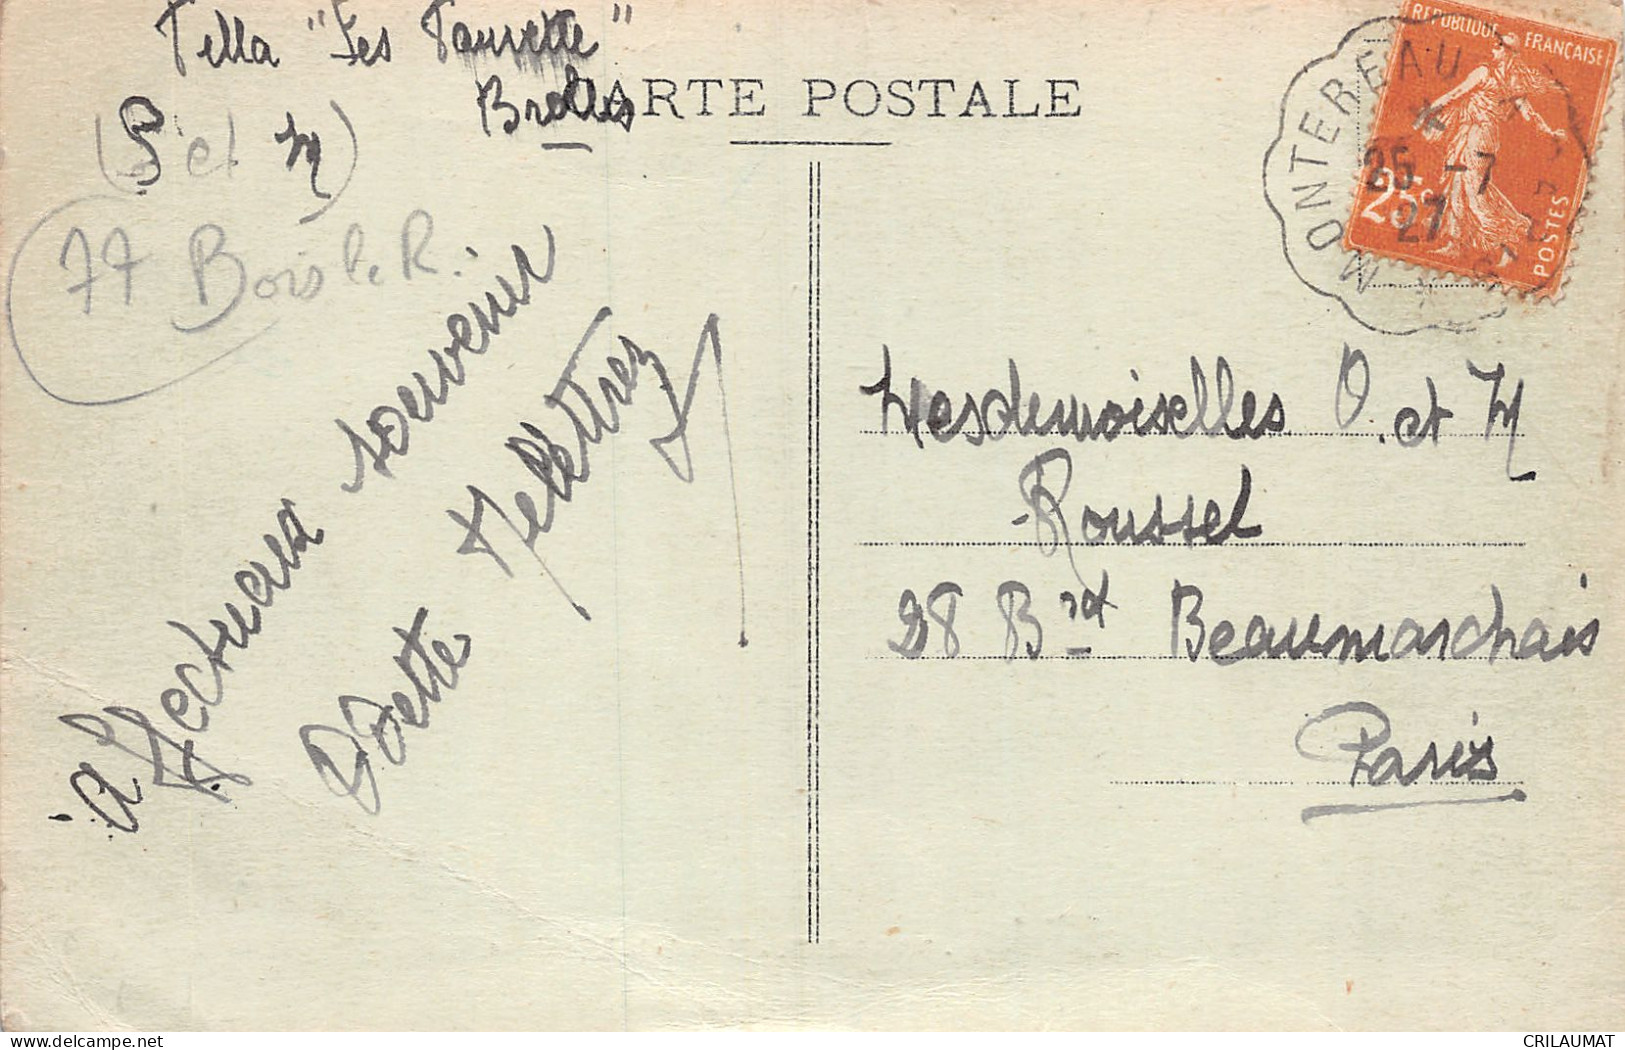 Villa "Les Fauvette"
Brolles
CARTE POSTALE
(S et M)
77 Bois le R.
à
Affectueux souvenir
Odette Pellettrez
REPUBLIQUE FRANÇAISE
25c
POSTES
MONTEREAU
25 -7
27
Mesdemoiselles O. et M
Roussel
28 Brd Beaumarchais
Paris
delcampe.net
CRILAUMAT